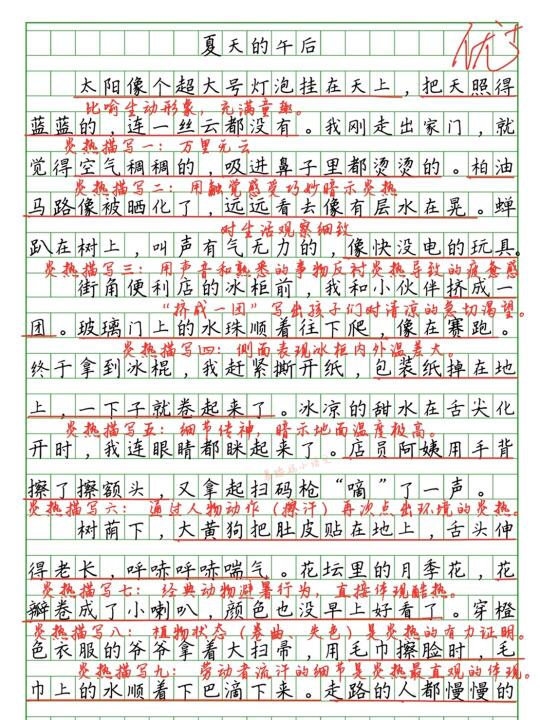 夏天的午后
优
太阳像个超大号灯泡挂在天上，把天照得
比喻生动形象，充满童趣。
蓝蓝的，连一丝云都没有。我刚走出家门，就
炎热描写一：万里无云
觉得空气稠稠的 吸进鼻子里都烫烫的。柏油
炎热描写二：用触觉感受巧妙暗示炎热
马路像被晒化了，远远看去像有层水在晃。蝉
对生活观察细致
趴在树上，叫声有气无力的，像快没电的玩具。
炎热描写三：用声音和熟悉的事物反衬炎热导致的疲惫感
街角便利店的冰柜前，我和小伙伴挤成一
“挤成一团”写出孩子们对清凉的急切渴望。
团。玻璃门上的水珠顺着往下爬，像在赛跑。
炎热描写四：侧面表现冰柜内外温差大。
终于拿到冰棍，我赶紧撕开纸，包装纸掉在地
上，一下子就卷起来了。冰凉的甜水在舌尖化
炎热描写五：细节传神，暗示地面温度极高。
开时，我连眼睛都眯起来了。店员阿姨用手背
擦了擦额头，又拿起扫码枪“嘀”了一声。
炎热描写六：通过人物动作（擦汗）再次点出环境的炎热。
树荫下，大黄狗把肚皮贴在地上，舌头伸
得老长，呼哧呼哧喘气。花坛里的月季花，花
炎热描写七：经典动物避暑行为，直接体现酷热。
瓣卷成了小喇叭，颜色也没早上好看了。穿橙
炎热描写八：植物状态（卷曲、失色）是炎热的有力证明。
色衣服的爷爷拿着大扫帚，用毛巾擦脸时，毛
炎热描写九：劳动者流汗的细节是炎热最直观的体现。
巾上的水顺着下巴滴下来。走路的人都慢慢的